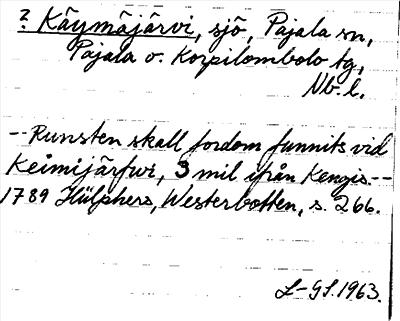 ? Käymäjärvi, sjö, Pajala sn,
Pajala o. Korpilombolo tg,
Nb. l.
-- Runsten skall fordom funnits vid
Keimijärfwi, 3 mil ifrån Kengis. --
1789 Hülphers, Westerbotten, s. 266.
L-GS. 1963.